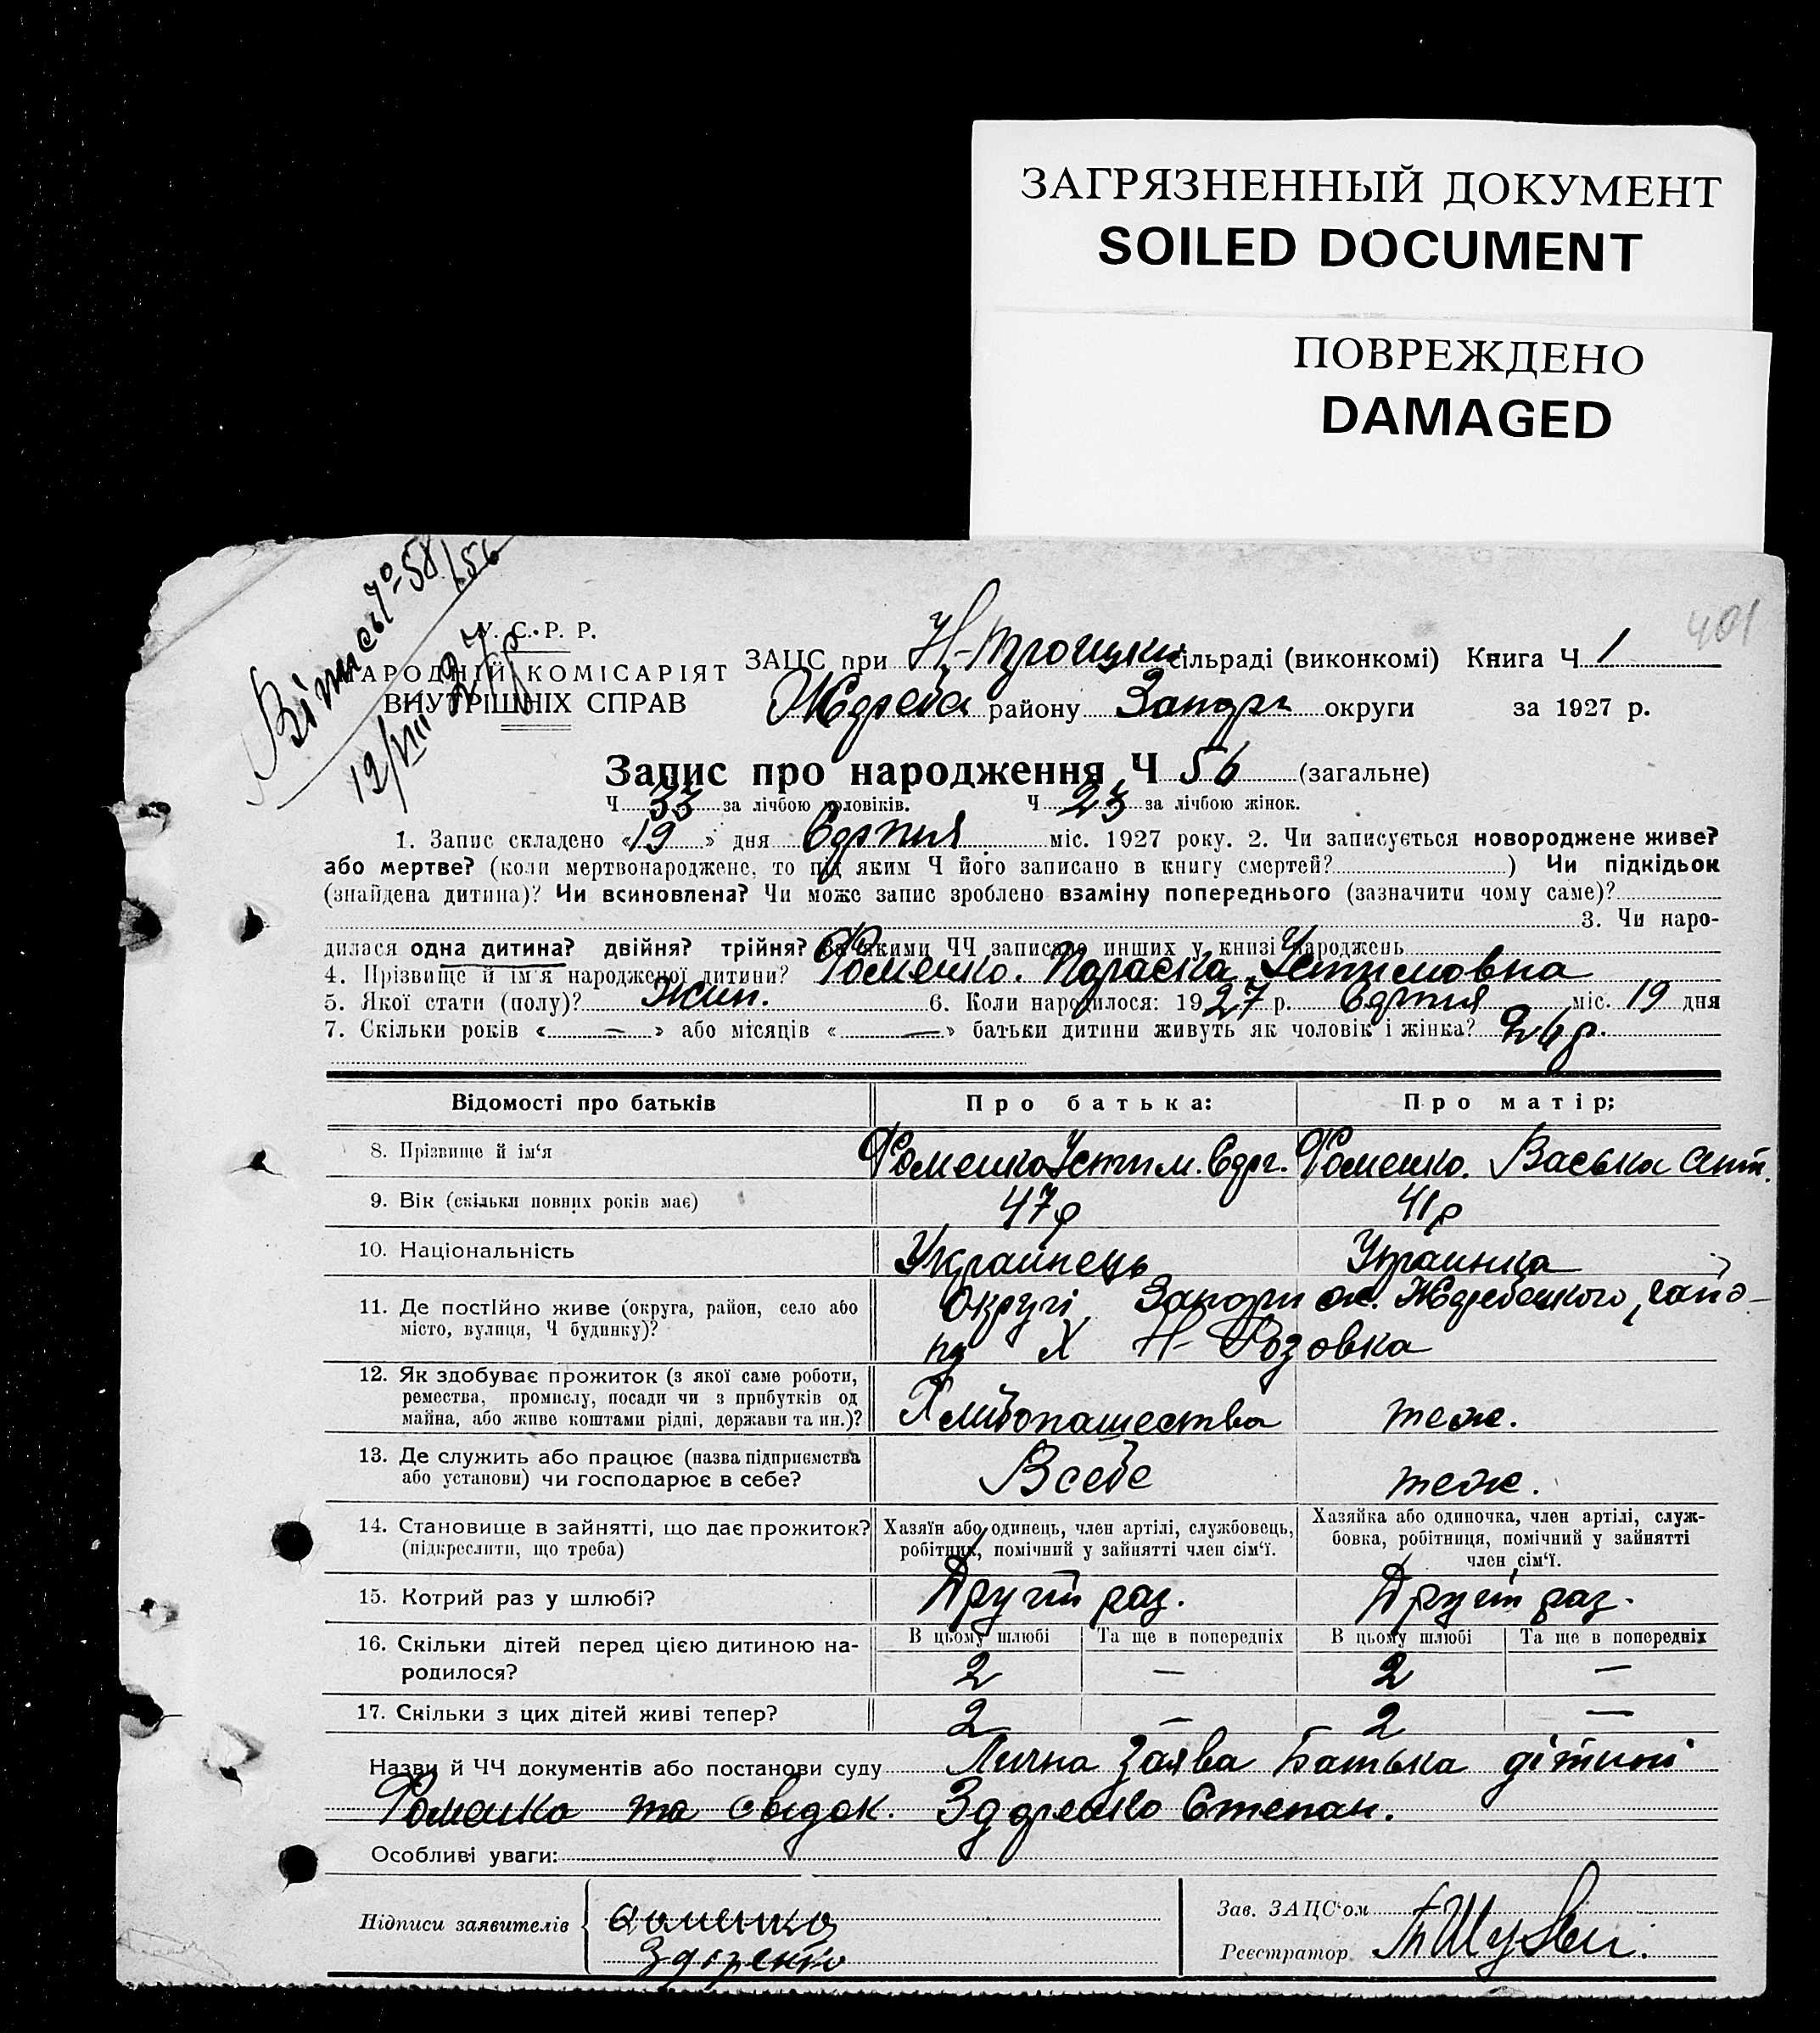 ЗАГРЯЗНЕННЫЙ ДОКУМЕНТ
SOILED DOCUMENT
ПОВРЕЖДЕНО
DAMAGED
401
№ 58/156
У. С. Р. Р.
НАРОДНІЙ КОМІСАРІЯТ
ВНУТРІШНІХ СПРАВ
ЗАЦС при Н-Троицки сільраді (виконкомі) Книга Ч 1
району Запорі округи за 1927 р.
Запис про народження Ч 56 (загальне)
Ч 33 за лічбою чоловіків. Ч 23 за лічбою жінок.
1. Запис складено «19» дня Серпня міс. 1927 року. 2. Чи записується новороджене живе?
або мертве? (коли мертвонароджене, то під яким Ч його записано в книгу смертей? ) Чи підкідьок
(знайдена дитина)? Чи всиновлена? Чи може запис зроблено взаміну попереднього (зазначити чому саме)?
3. Чи наро-
дилася одна дитина? двійня? трійня? За якими ЧЧ записано инших у книзі народжень
4. Прізвище й ім'я народженої дитини? Фоменко. Параска Устимовна
5. Якої стати (полу)? Жин. 6. Коли народилося: 1927 р. Серпня міс. 19 дня
7. Скільки років « — » або місяців « — » батьки дитини живуть як чоловік і жінка? 26 р.
Відомості про батьків Про батька: Про матір;
8. Прізвище й ім'я Фоменко Устим. Фоменко. Васька
9. Вік (скільки повних років має) 47 р 41 р
10. Національність Украінець Украинка
11. Де постійно живе (округа, район, село або
місто, вулиця, Ч будинку)?
Округі Запоріж
Х Н-Розовка
12. Як здобуває прожиток (з якої саме роботи,
ремества, промислу, посади чи з прибутків од
майна, або живе коштами рідні, держави та ин.)?
Хлибопашества теж.
13. Де служить або працює (назва підприємства
або установи) чи господарює в себе?
В себе теж.
14. Становище в зайнятті, що дає прожиток?
(підкреслити, що треба)
Хазяїн або одинець, член артілі, службовець,
робітник, помічний у зайнятті член сім'ї.
Хазяйка або одиночка, член артілі, служ-
бовка, робітниця, помічний у зайнятті
член сім'ї.
15. Котрий раз у шлюбі? Другий раз. Другий раз.
16. Скільки дітей перед цією дитиною на-
родилося?
В цьому шлюбі Та ще в попередніх В цьому шлюбі Та ще в попередніх
2 — 2 —
17. Скільки з цих дітей живі тепер? 2 — 2 —
Назви й ЧЧ документів або постанови суду Лична Заява Батька дітині
Фоменко та свідок. Здоренко Степан.
Особливі уваги:
Підписи заявителів
Фоменко
Здоренко
Зав. ЗАЦС'ом
Реєстратор